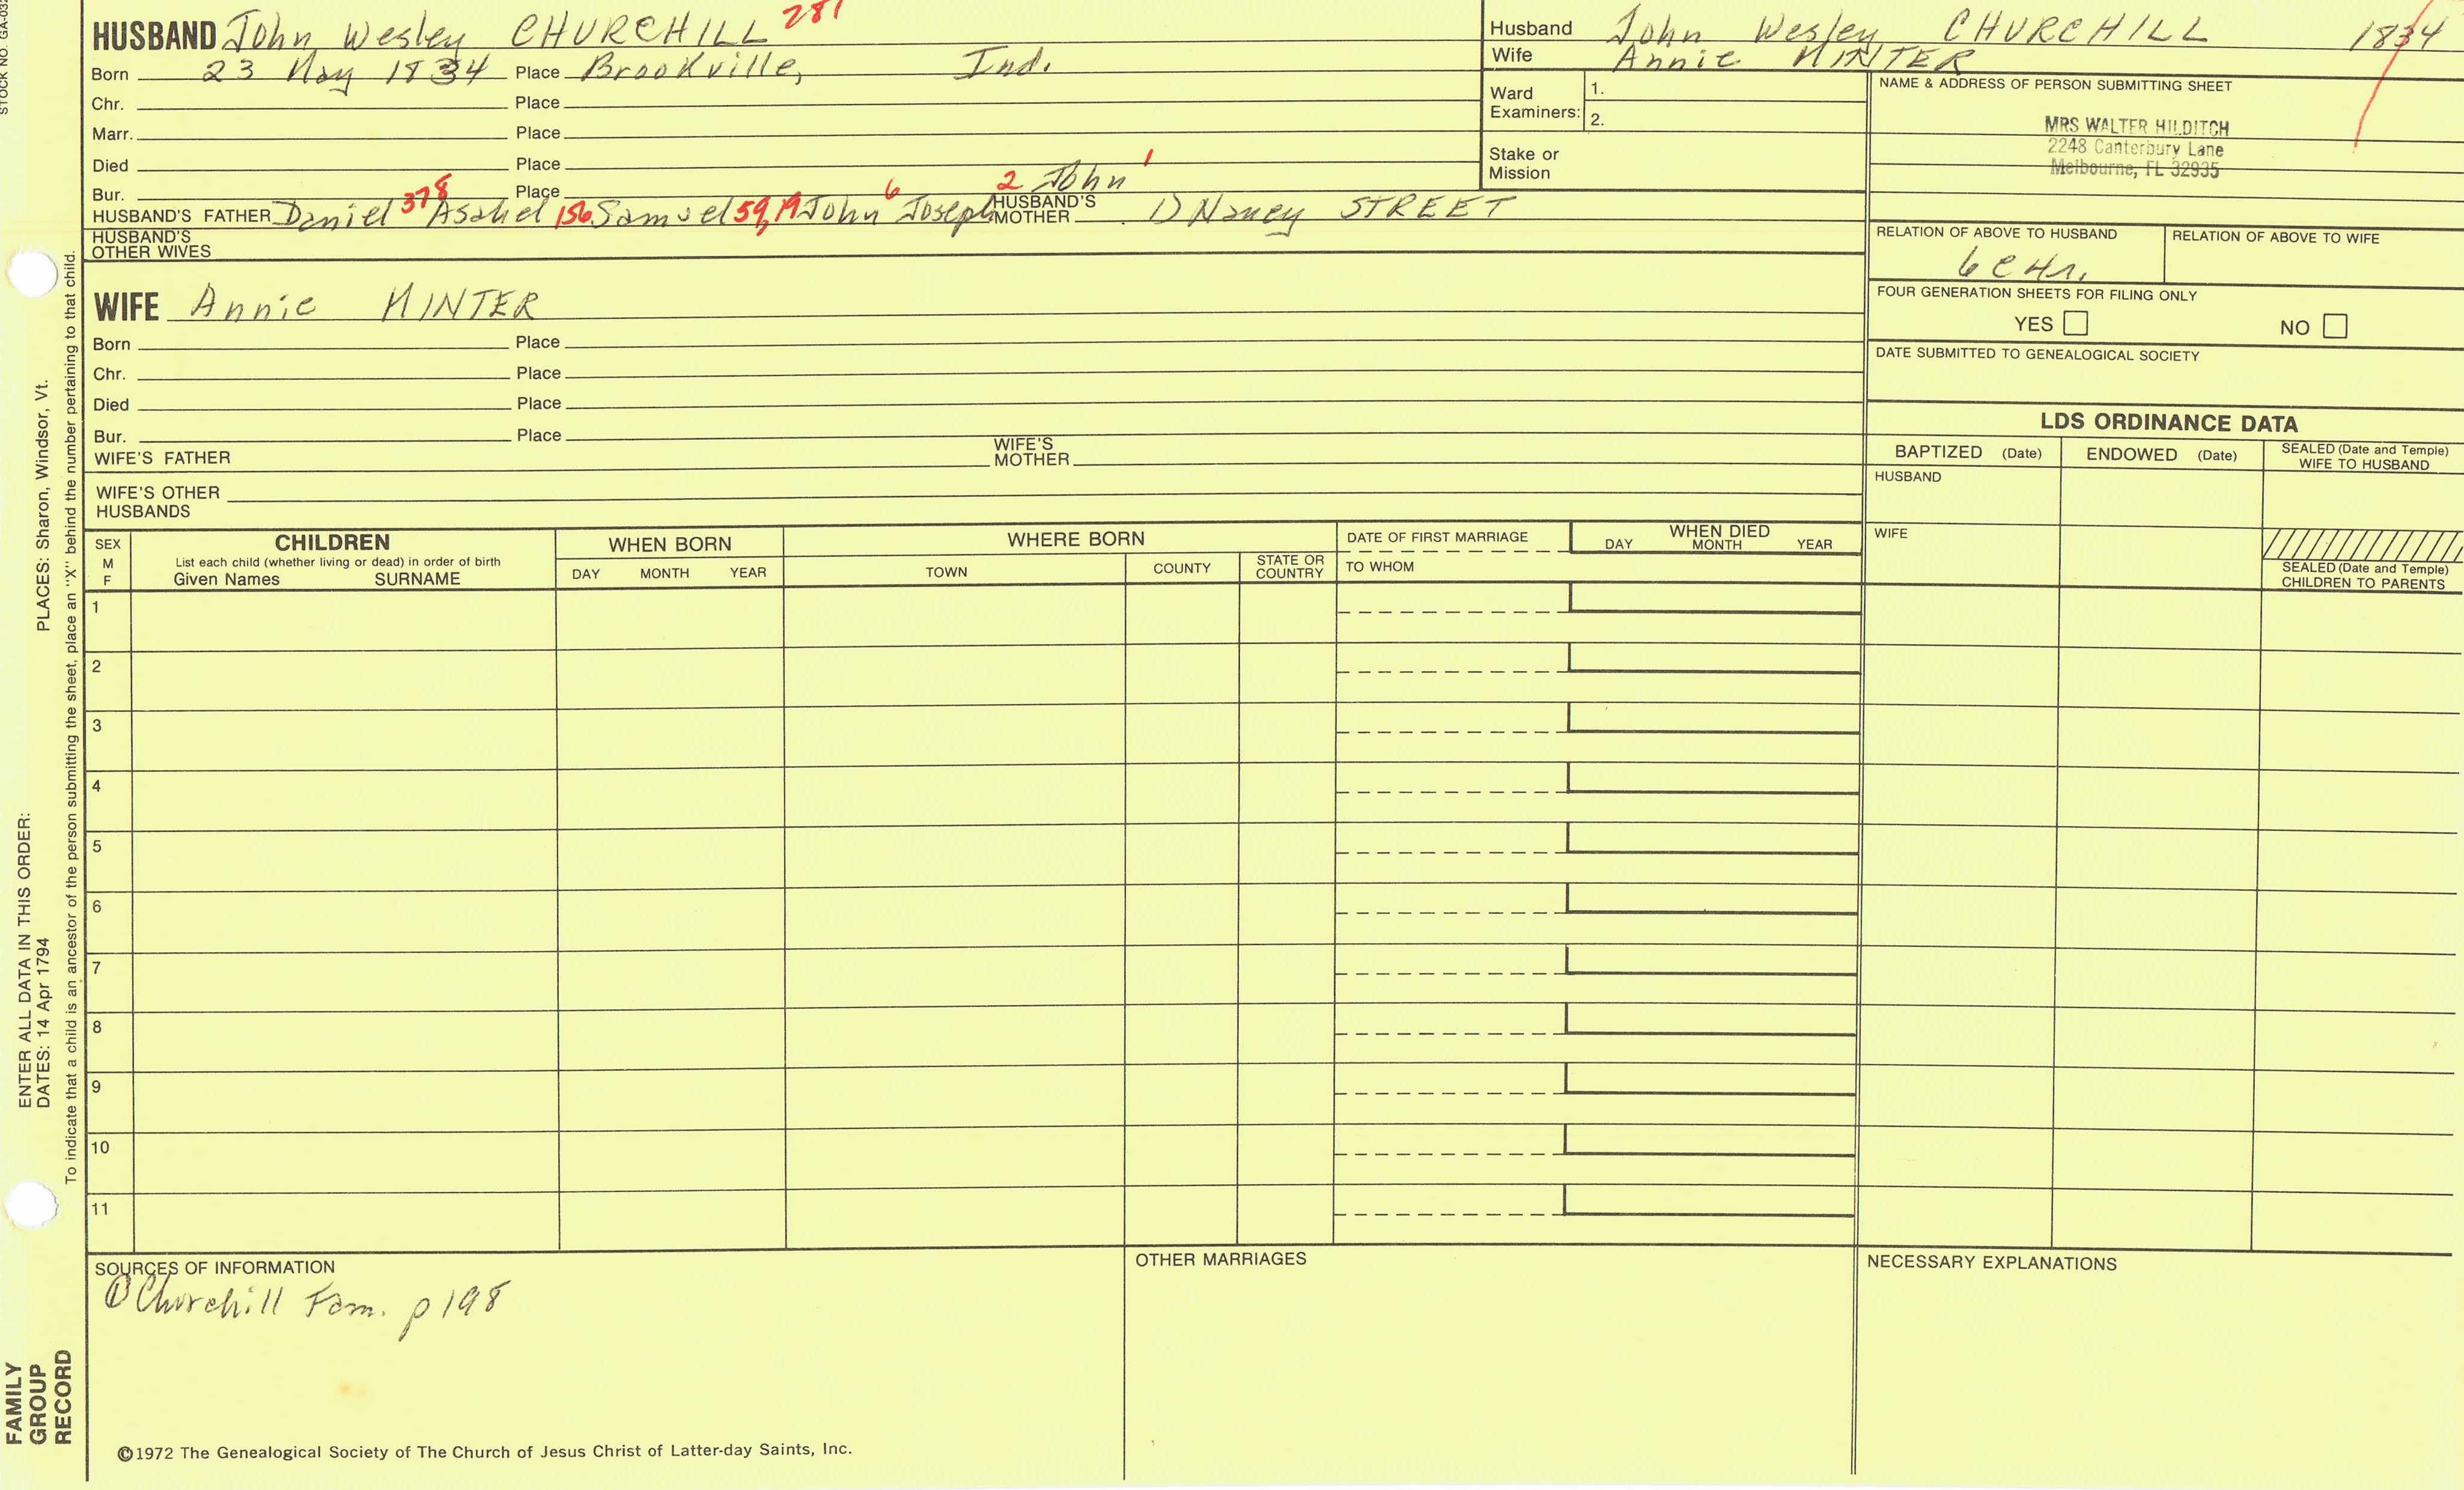 STOCK NO. GA-032
HUSBAND John Wesley CHURCHILL 281
Born 23 May 1834 Place Brookville, Ind.
Chr. Place
Marr. Place
Died Place
Bur. Place
HUSBAND'S FATHER Daniel 378 Asahel 156 Samuel 59, 19 John 6 Joseph 2 John 1
HUSBAND'S MOTHER 1) Nancy STREET
HUSBAND'S OTHER WIVES
WIFE Annie MINTER
Born Place
Chr. Place
Died Place
Bur. Place
WIFE'S FATHER WIFE'S MOTHER
WIFE'S OTHER HUSBANDS
Husband John Wesley CHURCHILL 1834
Wife Annie MINTER
Ward Examiners: 1. 2.
Stake or Mission
NAME & ADDRESS OF PERSON SUBMITTING SHEET
MRS WALTER HILDITCH
2248 Canterbury Lane
Melbourne, FL 32935
RELATION OF ABOVE TO HUSBAND RELATION OF ABOVE TO WIFE
6 C 4r.
FOUR GENERATION SHEETS FOR FILING ONLY
YES NO
DATE SUBMITTED TO GENEALOGICAL SOCIETY
LDS ORDINANCE DATA
BAPTIZED (Date) ENDOWED (Date) SEALED (Date and Temple) WIFE TO HUSBAND
HUSBAND
WIFE
SEALED (Date and Temple) CHILDREN TO PARENTS
SEX M F
CHILDREN
List each child (whether living or dead) in order of birth
Given Names SURNAME
WHEN BORN
DAY MONTH YEAR
WHERE BORN
TOWN COUNTY STATE OR COUNTRY
DATE OF FIRST MARRIAGE
TO WHOM
WHEN DIED
DAY MONTH YEAR
1
2
3
4
5
6
7
8
9
10
11
SOURCES OF INFORMATION
① Churchill Fam. p 198
OTHER MARRIAGES
NECESSARY EXPLANATIONS
©1972 The Genealogical Society of The Church of Jesus Christ of Latter-day Saints, Inc.
ENTER ALL DATA IN THIS ORDER:
DATES: 14 Apr 1794 PLACES: Sharon, Windsor, Vt.
To indicate that a child is an ancestor of the person submitting the sheet, place an "X" behind the number pertaining to that child.
FAMILY
GROUP
RECORD